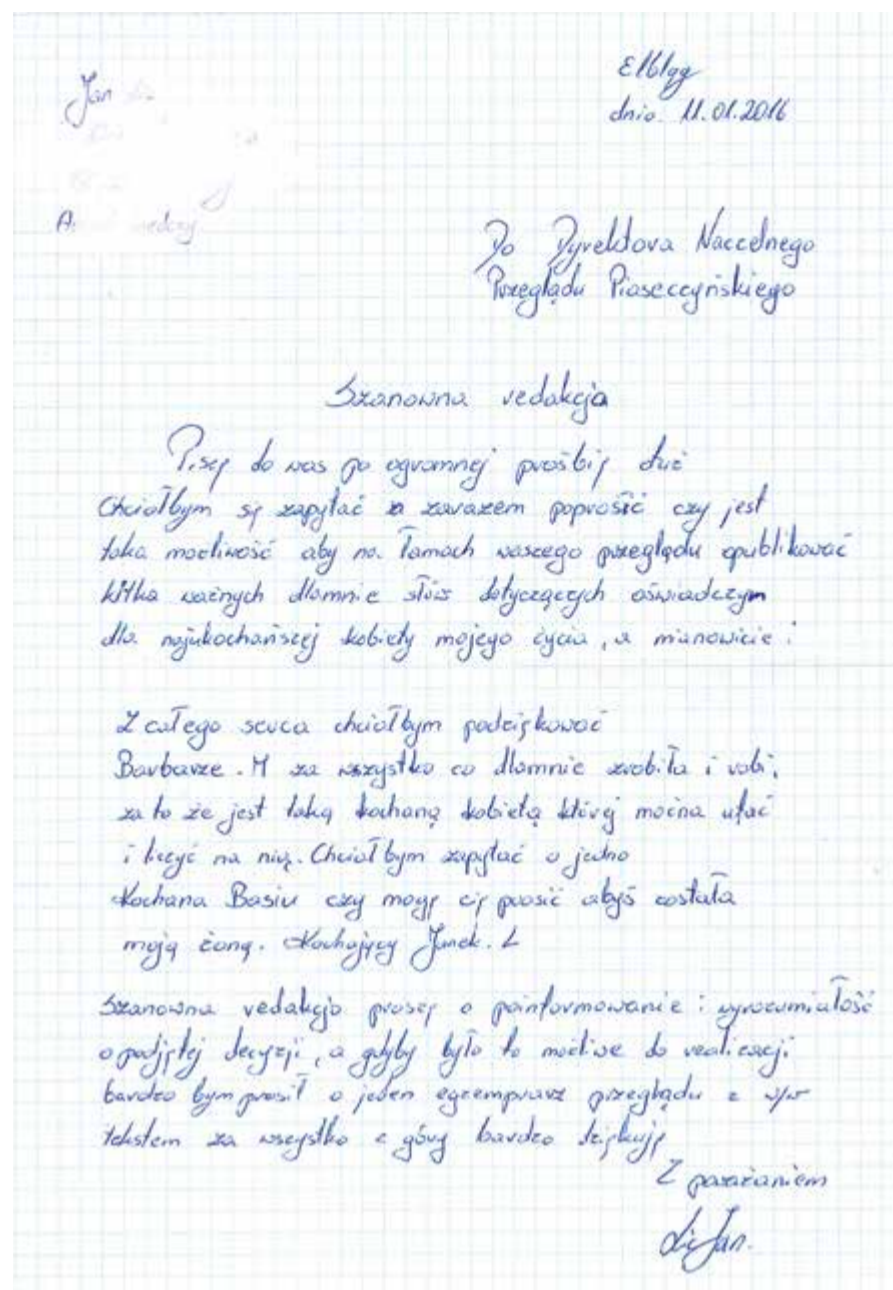 Jan
Elbląg
dnia. 11.01.2016
Do Dyrektora Naczelnego
Przeglądu Piaseczyńskiego
Szanowna redakcja
Piszę do was po ogromnej prośbię
Chciałbym się zapytać zarazem poprosić czy jest
taka możliwość aby na łamach waszego przeglądu opublikować
kilka ważnych dlamnie słów dotyczących oświadczyn
dla najukochańszej kobiety mojego życia, a mianowicie:
Z całego serca chciałbym podziękować
Barbarze. M za wszystko co dlamnie zrobiła i robi,
za to że jest taką kochaną kobietą której można ufać
i liczyć na nią. Chciałbym zapytać o jedno
Kochana Basiu czy mogę cię prosić abyś została
moją żoną. Kochający Janek. L
Szanowna redakcjo proszę o poinformowanie i wyrozumiałość
o podjętej decyzji, a gdyby było to możliwe do realizacji
bardzo bym prosił o jeden egzemprarz przeglądu z w/w
tekstem za wszystko z góry bardzo dziękuję
Z poważaniem
Jan.